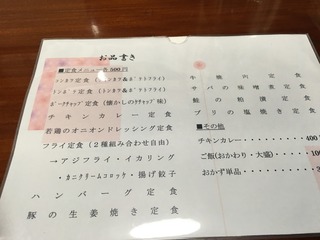 お品書き
■定食メニュー各500円
トンカツ定食（トンカツ&ポテトフライ）
トンカツ定食（トンカツ&ポテトフライ）
ポークチャップ定食（懐かしのケチャップ味）
チキンカレー定食
若鶏のオニオンドレッシング定食
フライ定食（２種組み合わせ自由）
→アジフライ・イカリング
・カニクリームコロッケ・揚げ餃子
ハンバーグ定食
豚の生姜焼き定食
牛焼肉定食
サバの味噌煮定食
鮭の粕漬定食
ブリの塩焼き定食
■その他
チキンカレー 400
ご飯（おかわり・大盛） 100
おかず単品